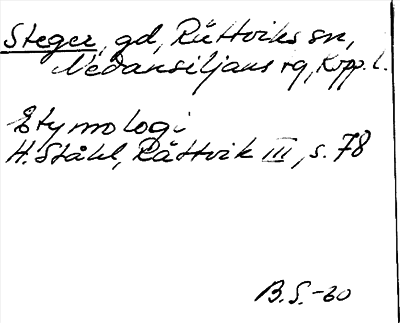 Steger, gd, Rättviks sn,
Nedansiljans rg, Kopp. l.
Etymologi
H. Ståhl, Rättvik III, s. 78
B.S.-60